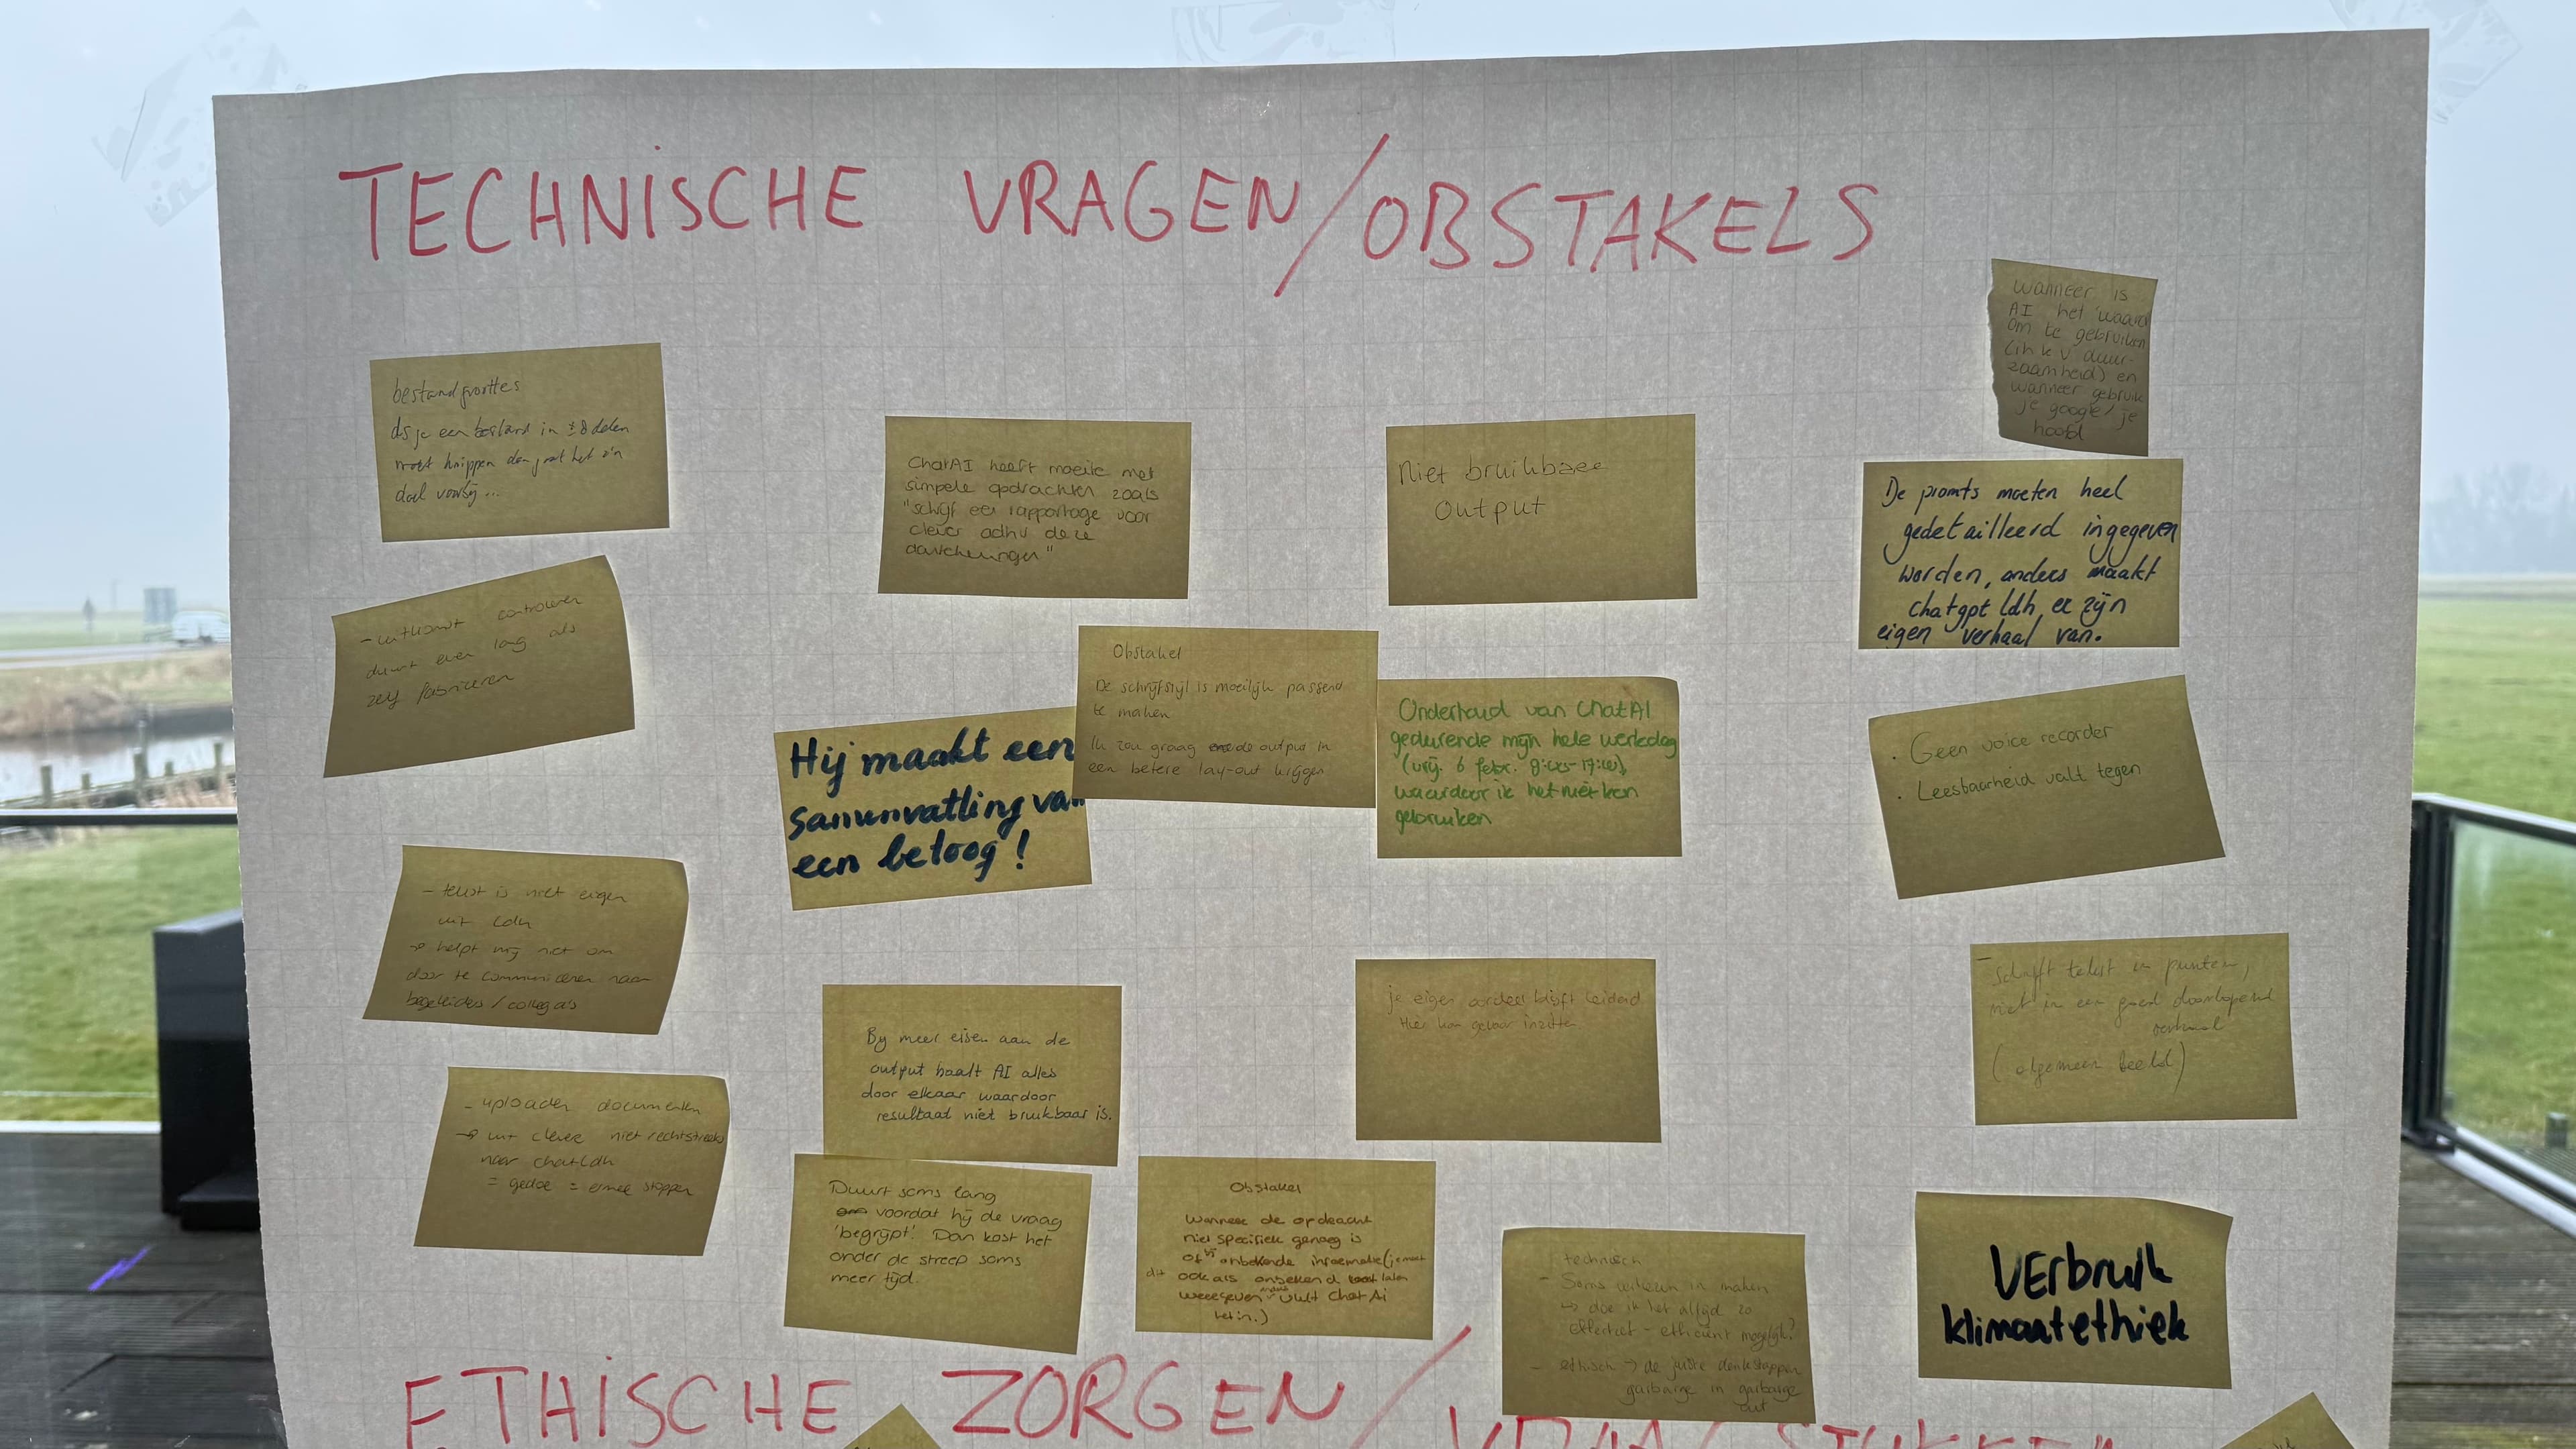 TECHNISCHE VRAGEN/OBSTAKELS
wanneer is
AI het waard
om te gebruiken
(ih k v duur-
zaamheid) en
wanneer gebruik
je google/je
hoofd
bestandgroottes
als je een bestand in ±8 delen
moet knippen dan gaat het z'n
doel voorbij...
ChatAI heeft moeite met
simpele opdrachten zoals
"schrijf een rapportage voor
clever adhv deze
Niet bruikbare
output
De promts moeten heel
gedetailleerd ingegeven
worden, anders maakt
chatgpt ldh er zijn
eigen verhaal van.
- uitkomst controleren
duurt even lang als
zelf fabriceren
Obstakel
De schrijfstijl is moeilijk passend
te maken
Ik zou graag de output in
een betere lay-out krijgen
Hij maakt een
samenvatting van
een betoog!
Onderhoud van ChatAI
gedurende mijn hele werkdag
(vrij. 6 febr. 8:00-17:00),
waardoor ik het niet kan
gebruiken
. Geen voice recorder
. Leesbaarheid valt tegen
- tekst is niet eigen
uit Ldh
→ helpt mij niet om
door te communiceren naar
begeleiders/collega's
By meer eisen aan de
output haalt AI alles
door elkaar waardoor
resultaat niet bruikbaar is.
je eigen oordeel blijft leidend
Hier kan gevaar inzitten
- schrijft tekst in punten,
niet in een goed doorlopend
verhaal
(algemeen beeld)
- uploaden documenten
→ uit clever niet rechtstreeks
naar chatLdh
= gedoe = ermee stoppen
Duurt soms lang
voordat hij de vraag
'begrijpt'. Dan kost het
onder de streep soms
meer tijd.
Obstakel
Wanneer de opdracht
niet specifiek genoeg is
of bij onbekende informatie (je moet
dit ook als onbekend laten
weergeven anders vult Chat Ai
het in.)
technisch
- Soms verkeren in maken
→ doe ik het altijd zo
effectief - efficiënt mogelijk?
- ethisch → de juiste denkstappen
garbarge in garbarge
out
VErbruik
klimaatethiek
ETHISCHE ZORGEN/